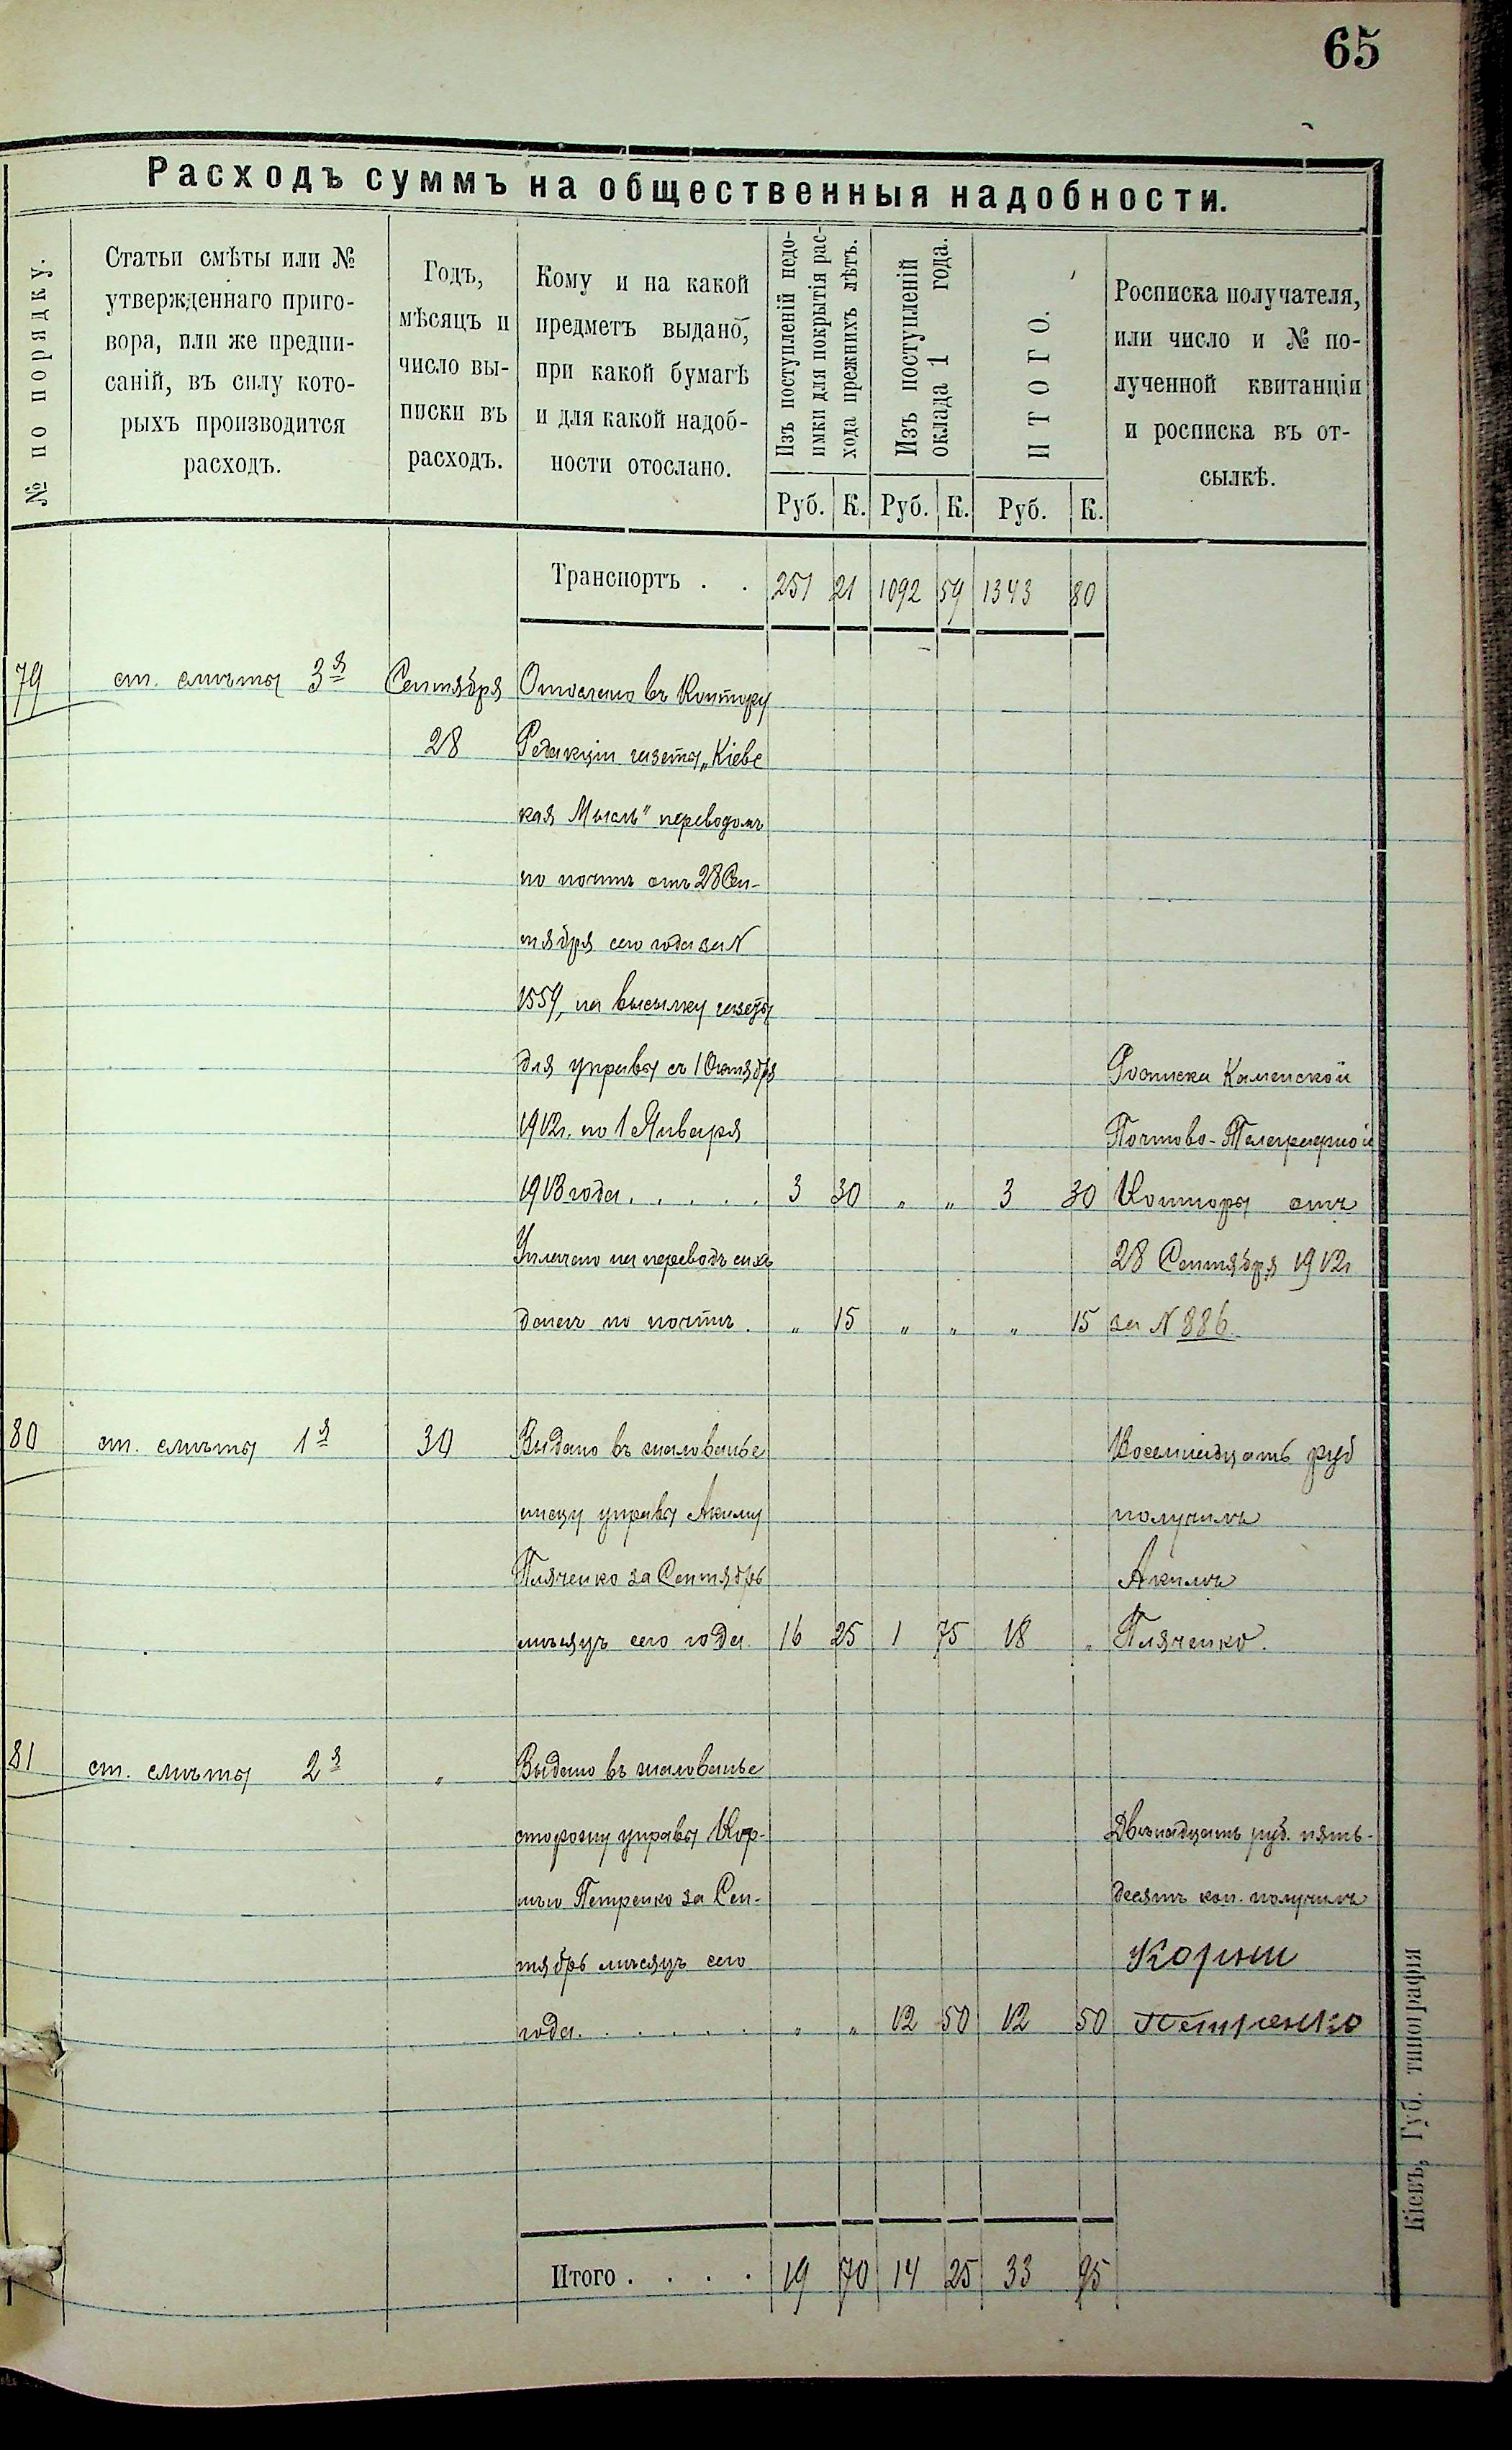 65
Расходъ суммъ на общественныя надобности.
№ по порядку.
Статьи смѣты или №
утвержденнаго приго-
вора, или же предпи-
саній, въ силу кото-
рыхъ производится
расходъ.
Годъ,
мѣсяцъ и
число вы-
писки въ
расходъ.
Кому и на какой
предметъ выдано,
при какой бумагѣ
и для какой надоб-
ности отослано.
Изъ поступленій недо-
имки для покрытія рас-
хода прежнихъ лѣтъ.
Изъ поступленій
оклада 1 года.
ИТОГО.
Росписка получателя,
или число и № по-
лученной квитанціи
и росписка въ от-
сылкѣ.
Руб. К. Руб. К. Руб. К.
Транспортъ . . 251 21 1092 59 1343 80
79 ст. смѣты 3я Сентября Отослано въ Контору
28 Редакціи газеты „Кіевс
кая Мысль" переводомъ
по почтѣ отъ 28 Сен-
тября сего года за N
1559, на высылку газеты
для управы съ 1 Октября Росписка Каменской
1912г. по 1 Января Почтово-Телеграфной
1913 года . . . . . 3 30 „ „ 3 30 Конторы отъ
Уплачено на переводъ сихъ 28 Сентября 1912г
денегъ по почтѣ . „ 15 „ „ „ 15 за N 886
80 ст. смѣты 1я 30 Выдано въ жалованье Восемнадцать руб
писцу управы Акиму получилъ
Пляченко за Сентябрь Акимъ
мѣсяцъ сего года 16 25 1 75 18 „ Пляченко.
81 ст. смѣты 2я „ Выдано въ жалованье
сторожу управы Кор- Двѣнадцать руб. пять-
нѣю Петренко за Сен- десятъ коп. получилъ
тябрь мѣсяцъ сего Корнѣи
года . . . . . . „ „ 12 50 12 50 Петренко
Итого . . . . 19 70 14 25 33 95
Кіевъ, Губ. типографія